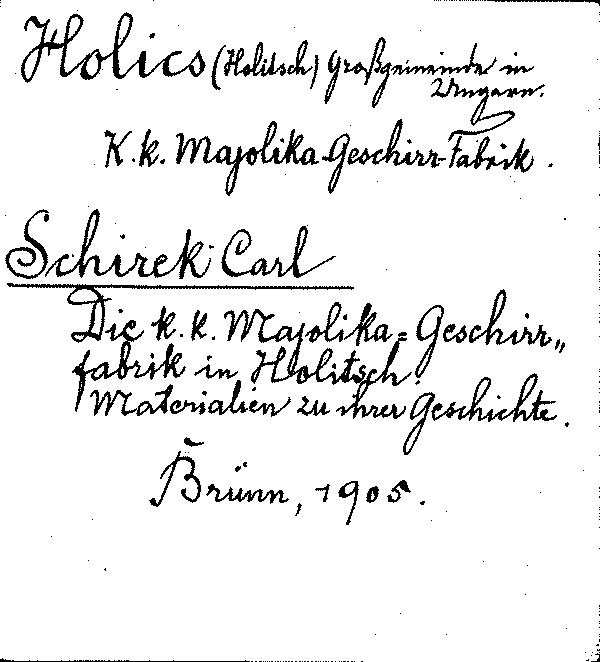 Holics (Holitsch) Großgemeinde in
Ungarn.
K. k. Majolika-Geschirr-Fabrik.
Schirek Carl
Die k. k. Majolika=Geschirr„
fabrik in Holitsch.
Materialien zu ihrer Geschichte.
Brünn, 1905.